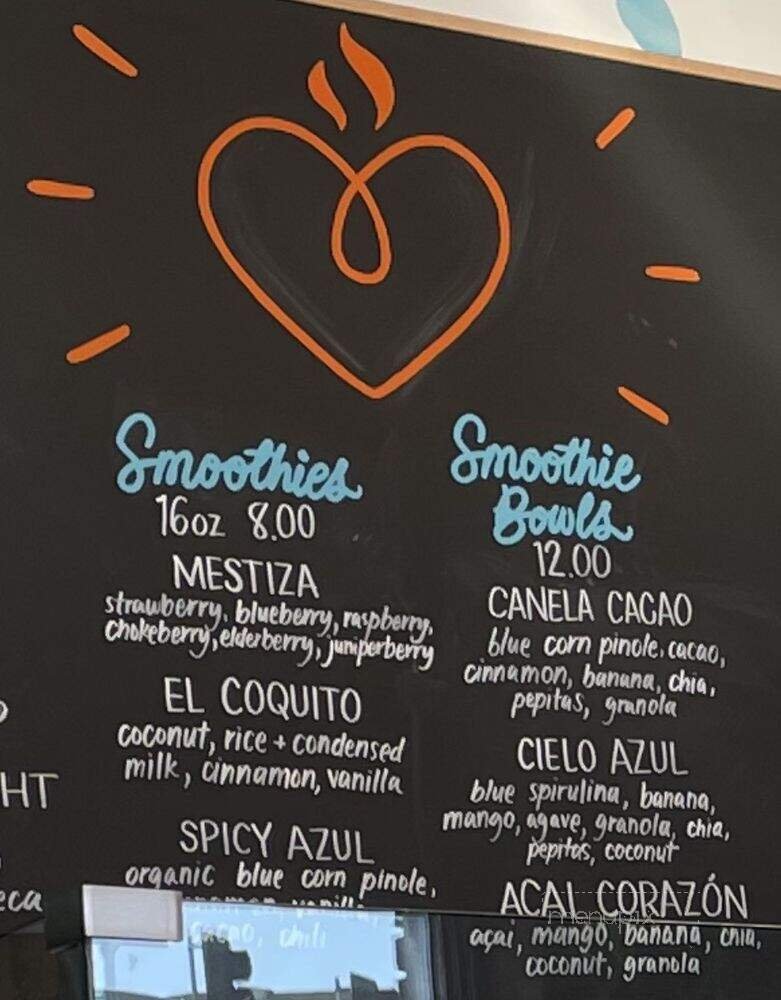 Smoothies
16oz 8.00
MESTIZA
strawberry, blueberry, raspberry,
chokeberry, elderberry, juniperberry
EL COQUITO
coconut, rice + condensed
milk, cinnamon, vanilla
SPICY AZUL
organic blue corn pinole,
cinnamon, vanilla,
cacao, chili
Smoothie
Bowls
12.00
CANELA CACAO
blue corn pinole, cacao,
cinnamon, banana, chia,
pepitas, granola
CIELO AZUL
blue spirulina, banana,
mango, agave, granola, chia,
pepitas, coconut
ACAI CORAZÓN
açai, mango, banana, chia,
coconut, granola
HT
eca
menupix